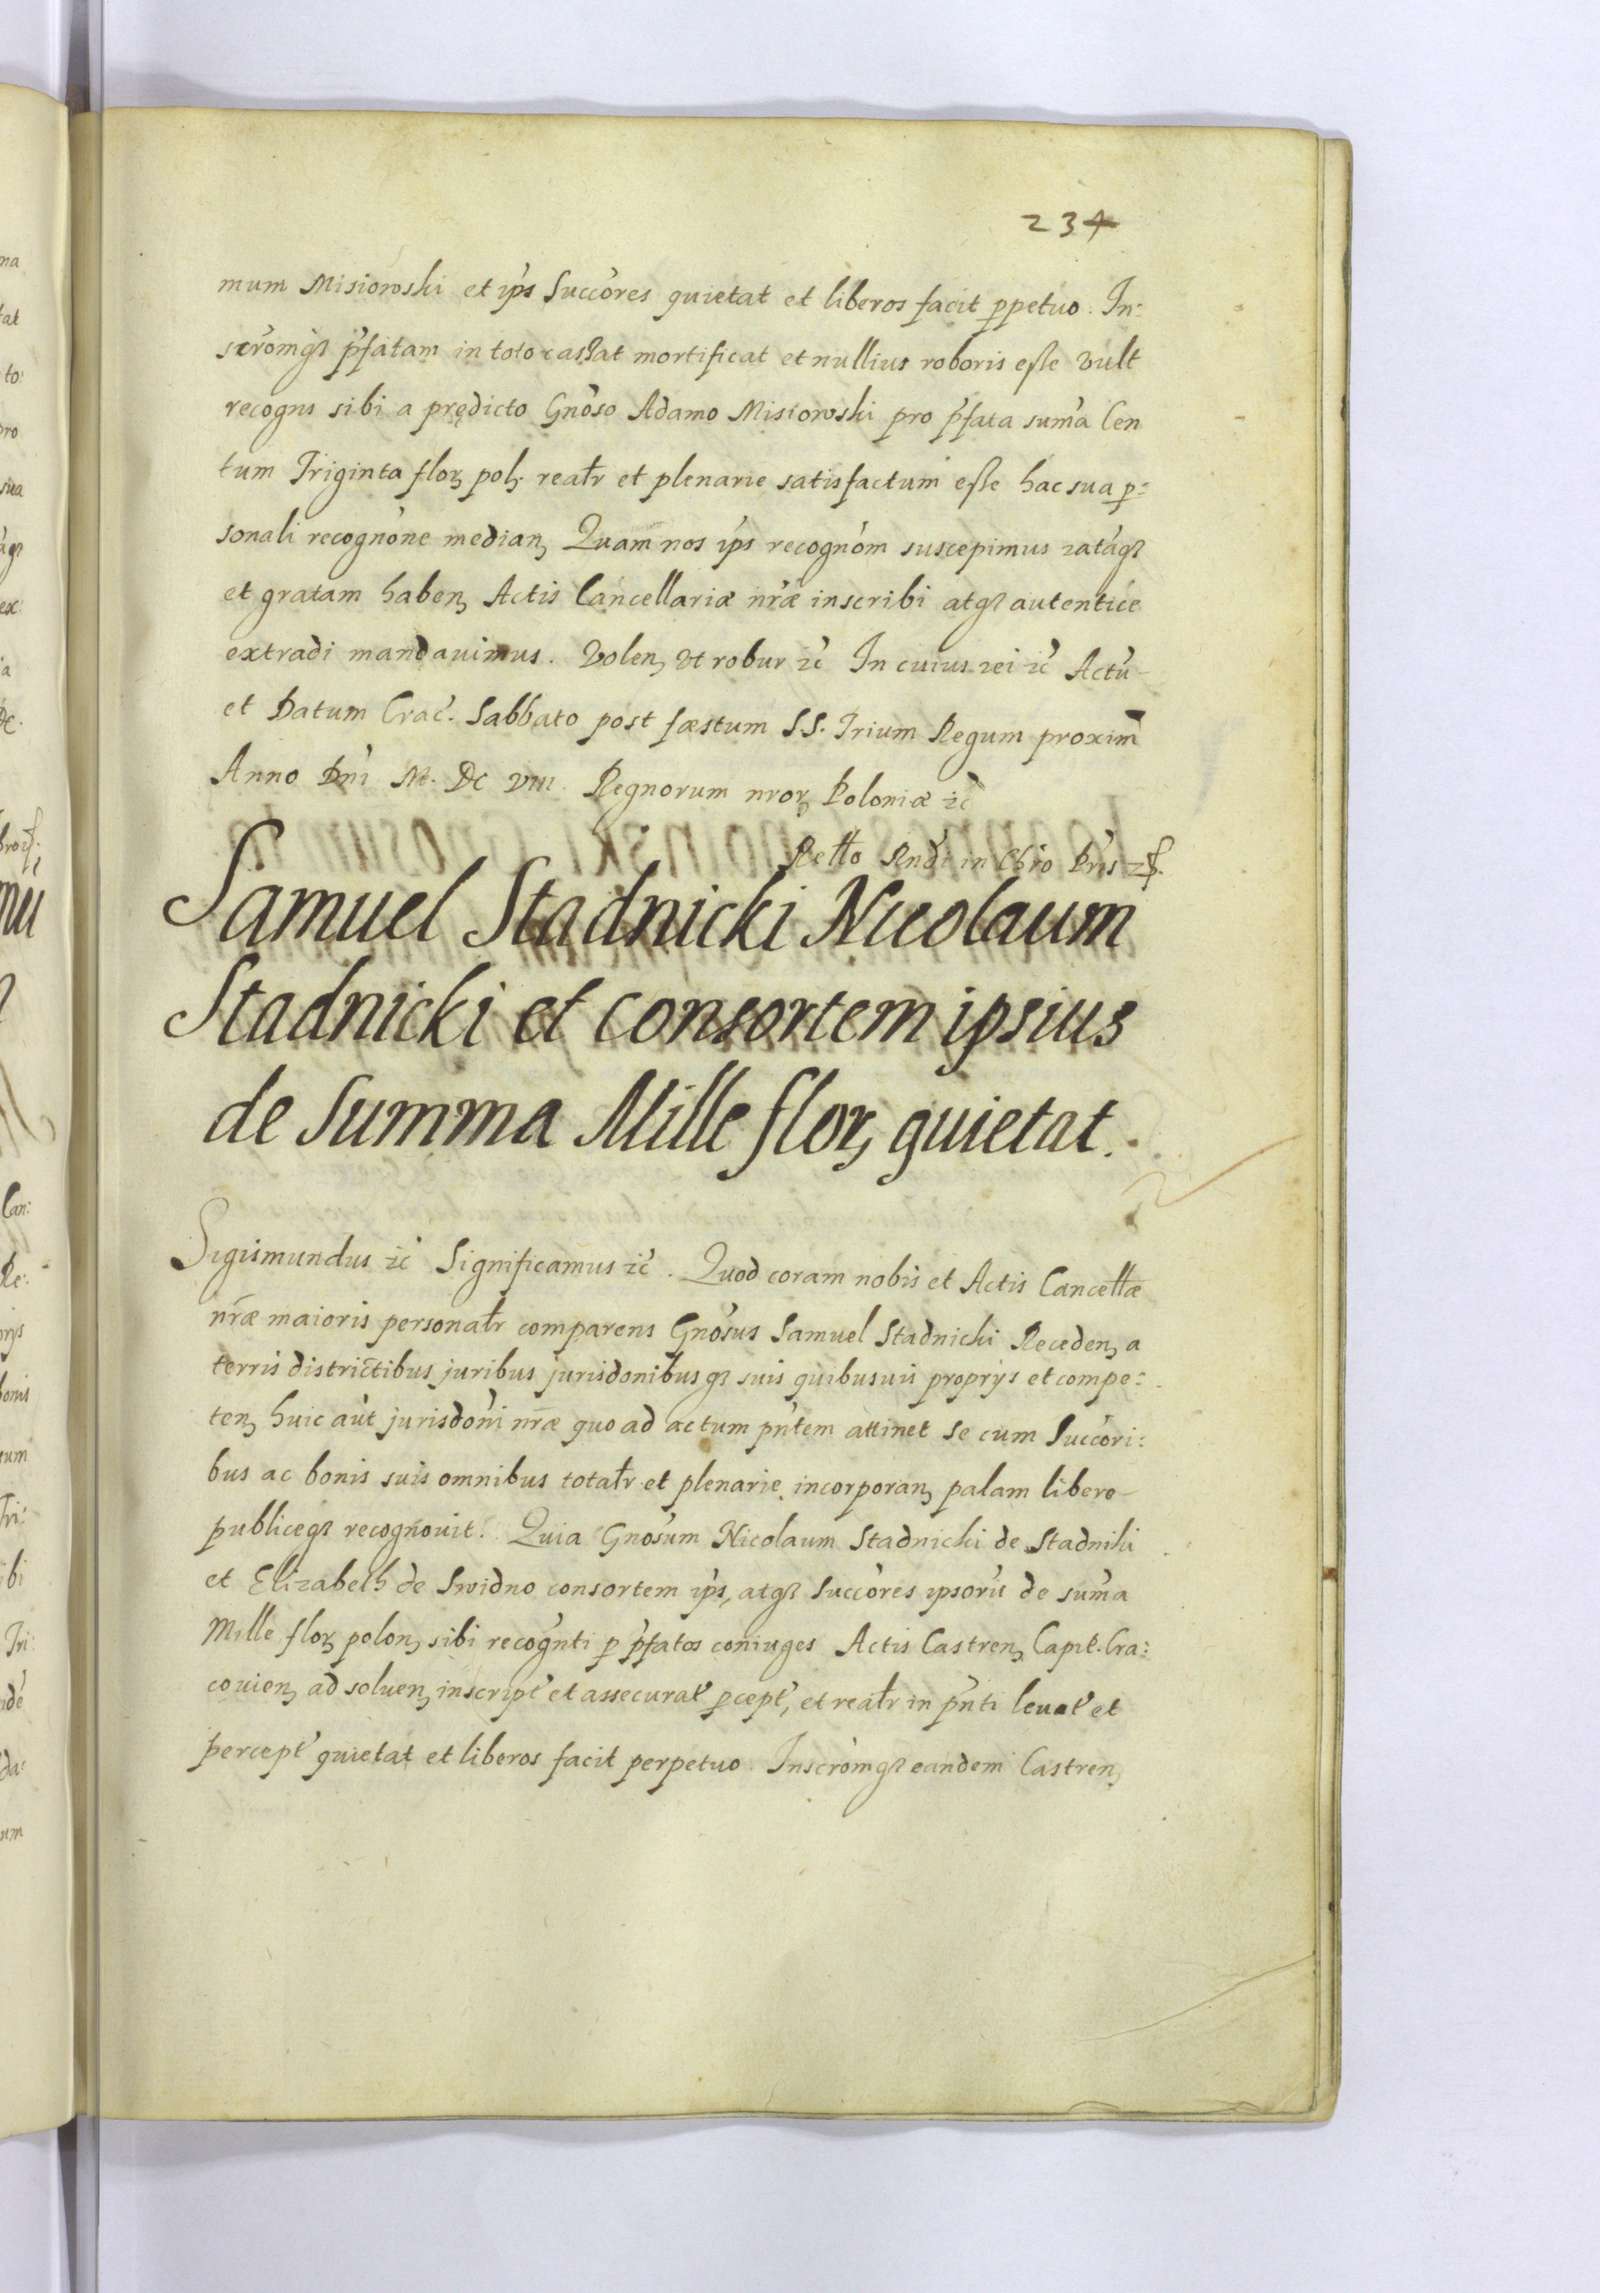 234
mum Misiowski et ips Succores quietat et liberos facit ppetuo. In:
scromq3 pfatam in toto cassat mortificat et nullius roboris esse vult
recogns sibi a prędicto Gnoso Adamo Misiowski pro pfata suma Cen
tum Triginta flor polz reatr et plenarie satisfactum esse hac sua p:
sonali recognone median Quam nos ips recognom suscepimus ratāq3
et gratam haben Actis Cancellariæ nræ inscribi atq3 autentice
extradi mandauimus. Volen vt robur zc In cuius rei zc Actū
et Datum Crac. Sabbato post fæstum S.S. Trium Regum proxim
Anno Dni M. DC VIII. Regnorum nror Poloniæ zc
Retto Rndi in Chro Pris zf.
Samuel Stadnicki Nicolaum
Stadnicki et consortem ipsius
de Summa Mille flor quietat.
Sigismundus zc Significamus zc. Quod coram nobis et Actis Cancellæ
nræ maioris personatr comparens Gnosus Samuel Stadnicki Receden a
terris districtibus juribus jurisdonibusq3 suis quibusuis proprys et compe:
ten huic aut jurisdoni nræ quo ad actum pntem attinet se cum Succori:
bus ac bonis suis omnibus totatr et plenarie incorporan palam libere
publiceq3 recognouit. Quia Gnosum Nicolaum Stadnicki de Stadniki
et Elizabeth de Swidno consortem ips, atq3 Succores ipsorū de suma
Mille flor polon sibi recognti p pfatos coniuges Actis Castren Capit. Cra:
couien ad soluen inscript et assecurat pcept, et reatr in pnti leuat et
percept quietat et liberos facit perpetuo. Inscromq3 eandem Castren